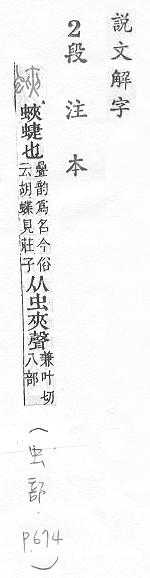 説文解字
2段注本
蛺
蛺蜨也 疊韵爲名今俗云胡蝶見莊子 从虫夾聲 兼叶切八部
(虫部. P.674)